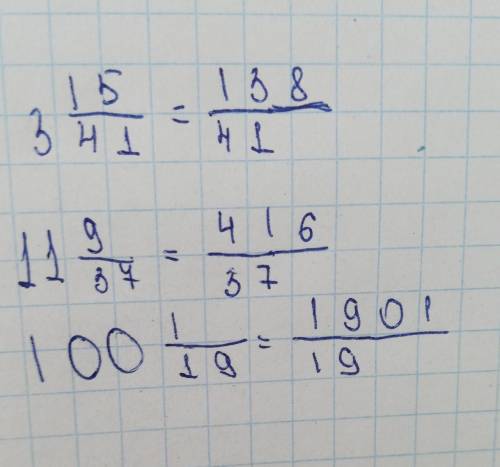 3 15/41 = 138/41
11 9/37 = 416/37
100 1/19 = 1901/19